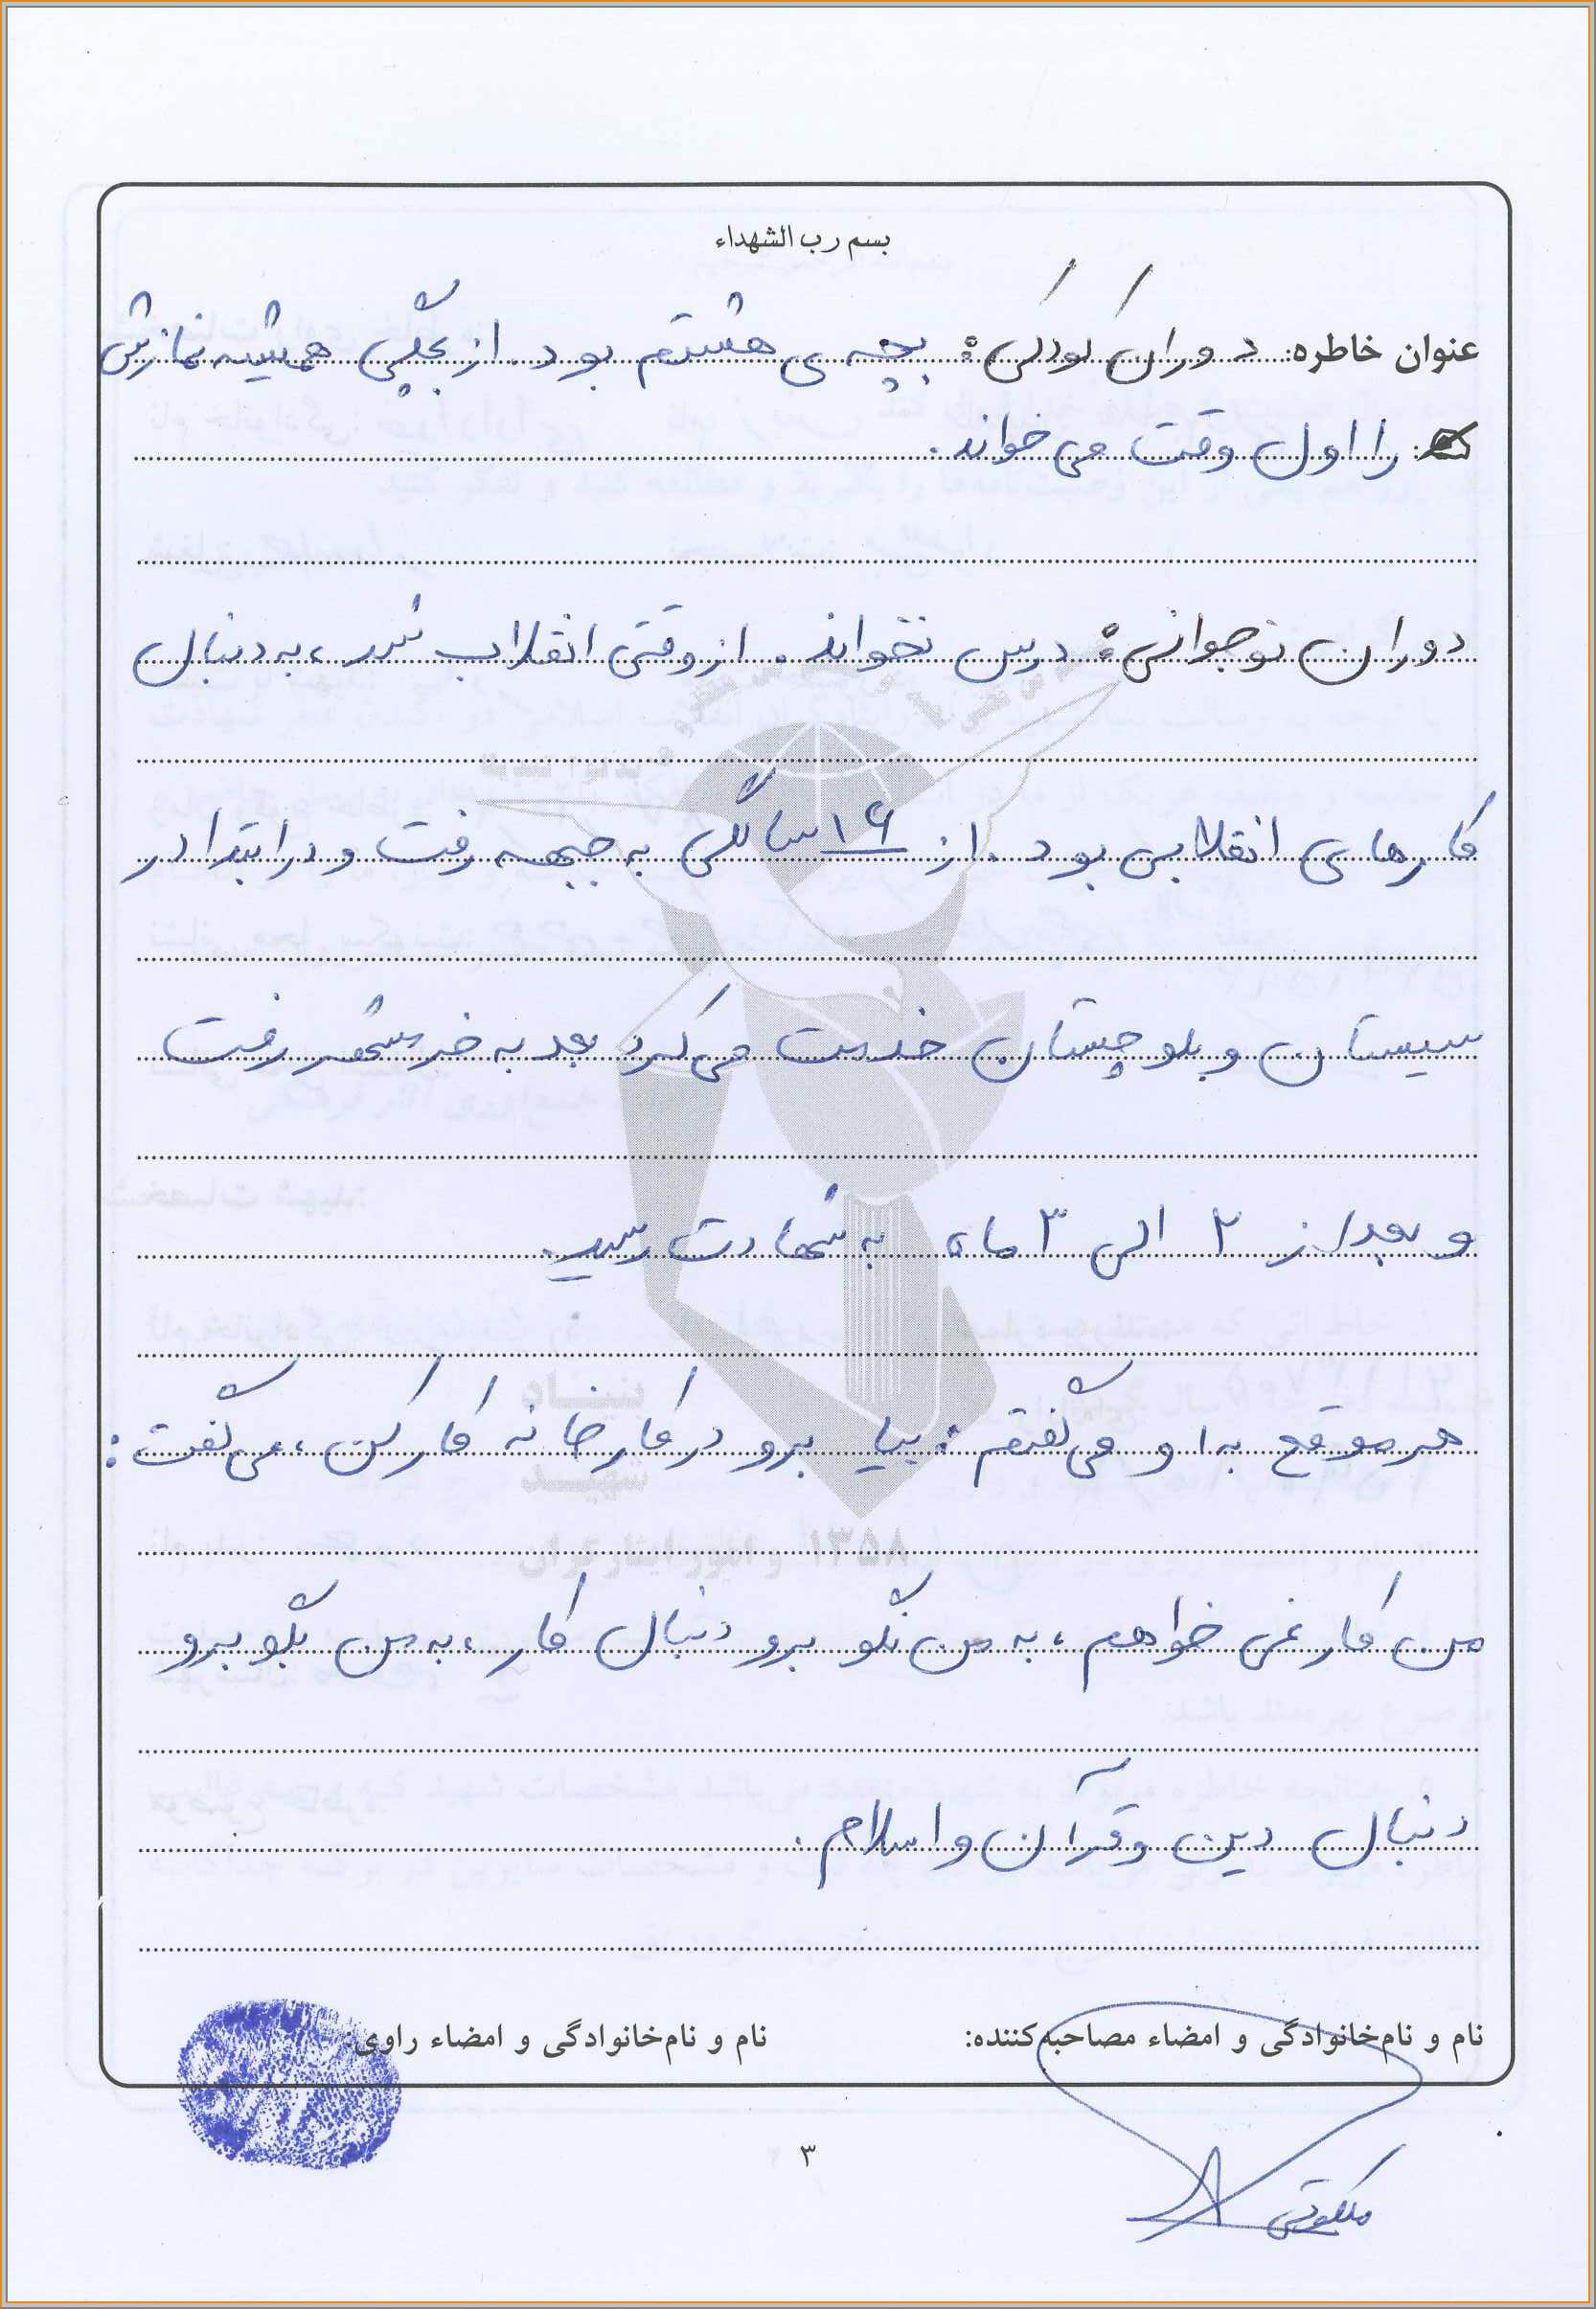 بسم رب الشهداء
عنوان خاطره: دوران کودکی: بچه ی هشتم بود. از بچگی همیشه نمازش
را اول وقت می خواند.
دوران نوجوانی: درس نخواند. از وقتی انقلاب شد، به دنبال
کارهای انقلابی بود. از ۱۶ سالگی به جبهه رفت و در ابتدا در
سیستان و بلوچستان خدمت می کرد بعد به خرمشهر رفت
و بعد از ۲ الی ۳ ماه به شهادت رسید.
هر موقع به او می گفتم: بیا برو در کارخانه کار کن، می گفت:
من کار نمی خواهم، به من نگو برو دنبال کار، به من بگو برو
دنبال دین و قرآن و اسلام.
بنیاد
شهید
۱۳۵۸ و امور ایثارگران
نام و نام‌خانوادگی و امضاء مصاحبه‌کننده: نام و نام‌خانوادگی و امضاء راوی:
۳
ملکوتی